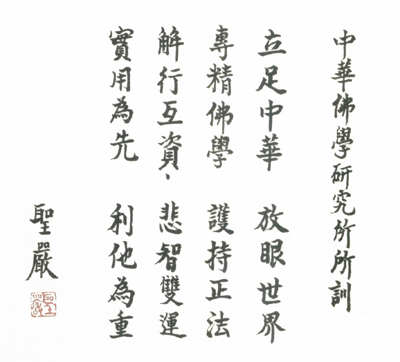 中華佛學研究所所訓
立足中華 放眼世界
專精佛學 護持正法
解行互資, 悲智雙運
實用為先 利他為重
聖嚴